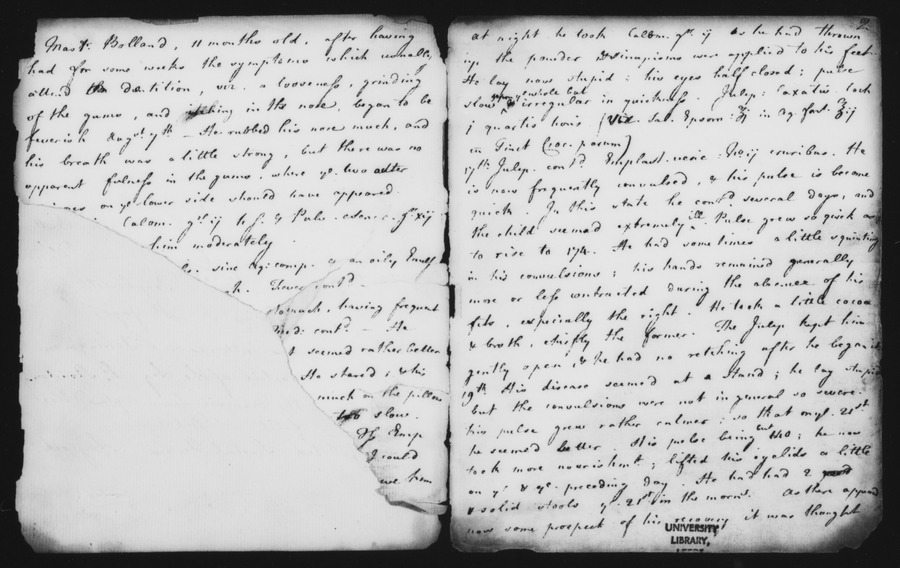 Mastr. Bolland, 11 months old, after having
had for some weeks the symptoms which usually
attend dentition, viz. a looseness, grinding
of the gums, and itching in the nose, began to be
feverish Augt. 7th — He rubbed his nose much, and
his breath was a little strong, but there was no
apparent fulness in the gums, where ye. two
on ye. lower side should have appeared.
Calom. gr. ij
him moderately
sine and an oily Emuls
Fever contd.
stomach, having frequent
Med: contd. — He
seemed rather better
He stared; & his
much on the pillow
slow.
I could
him
2
at night he took Calom. gr. ij as he had thrown
up the powder & sinapisms were applied to his feet.
He lay now stupid; his eyes half closed; pulse
upon ye whole but
slow & irregular in quickness. Julep: Laxativ. Coch
j quartis horis (Viz. Sal. Epsom: ℥j in Aq. font. ℥ij
cu Tinct Coc. parum)
17th. Julep. contd. Emplast. vesic: No. ij cruribus. He
is now frequently convulsed, & his pulse is become
quick. In this state he contd. several days, and
the child seemed extremely ill. Pulse grew so quick as
to rise to 174. He had sometimes a little squinting
in his convulsions; his hands remained generally
more or less contracted during the absence of his
fits, especially the right. He took a little cocoa
& broth, chiefly the former. The Julep kept him
gently open, & he had no retching after he began it
19th. His disease seemed at a stand; he lay stupid
but the convulsions were not in general so severe.
his pulse grew rather calmer; so that on ye. 21st
he seemed better. His pulse being but 140; he now
took more nourishmt; lifted his eyelids a little
on ye. & ye. preceding day. He had had 2
& solid stools ye. 21st in the morng. As there appeared
now some prospect of his recovery it was thought
UNIVERSITY
LIBRARY,
LEEDS